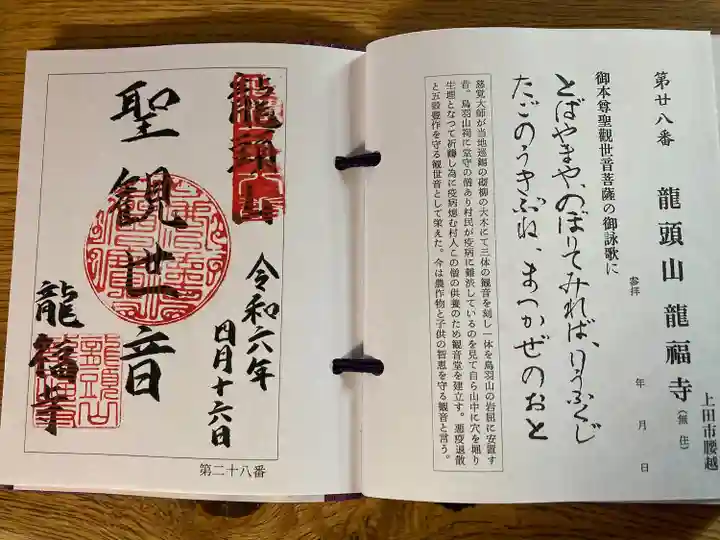 第廿八番 龍頭山 龍福寺(無住)
上田市腰越
参拝 年 月 日
御本尊聖觀世音菩薩の御詠歌に
とばやまや、のぼりてみれば、りうふくじ
たごのうきぶね、まつかぜのおと
慈覚大師が当地巡錫の砌柳の大木にて三体の観音を刻し一体を鳥羽山の岩屈に安置す
昔。鳥羽山祠に堂守の僧あり村民が疫病に難渋しているのを見て自ら山中に穴を堀り
生埋となつて祈祷し為に疫病熄む村人この僧の供養のため観音堂を建立す。悪疫退散
と五穀豊作を守る観世音として栄えた。今は農作物と子供の智恵を守る観音と言う。
龍頭山
令和六年
日月十六日
聖観世音
龍福寺
第二十八番